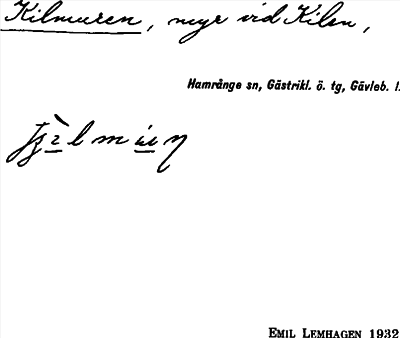 Kilmuren, myr vid Kilen,
Hamrånge sn, Gästrikl. ö. tg, Gävleb. l.
EMIL LEMHAGEN 1932